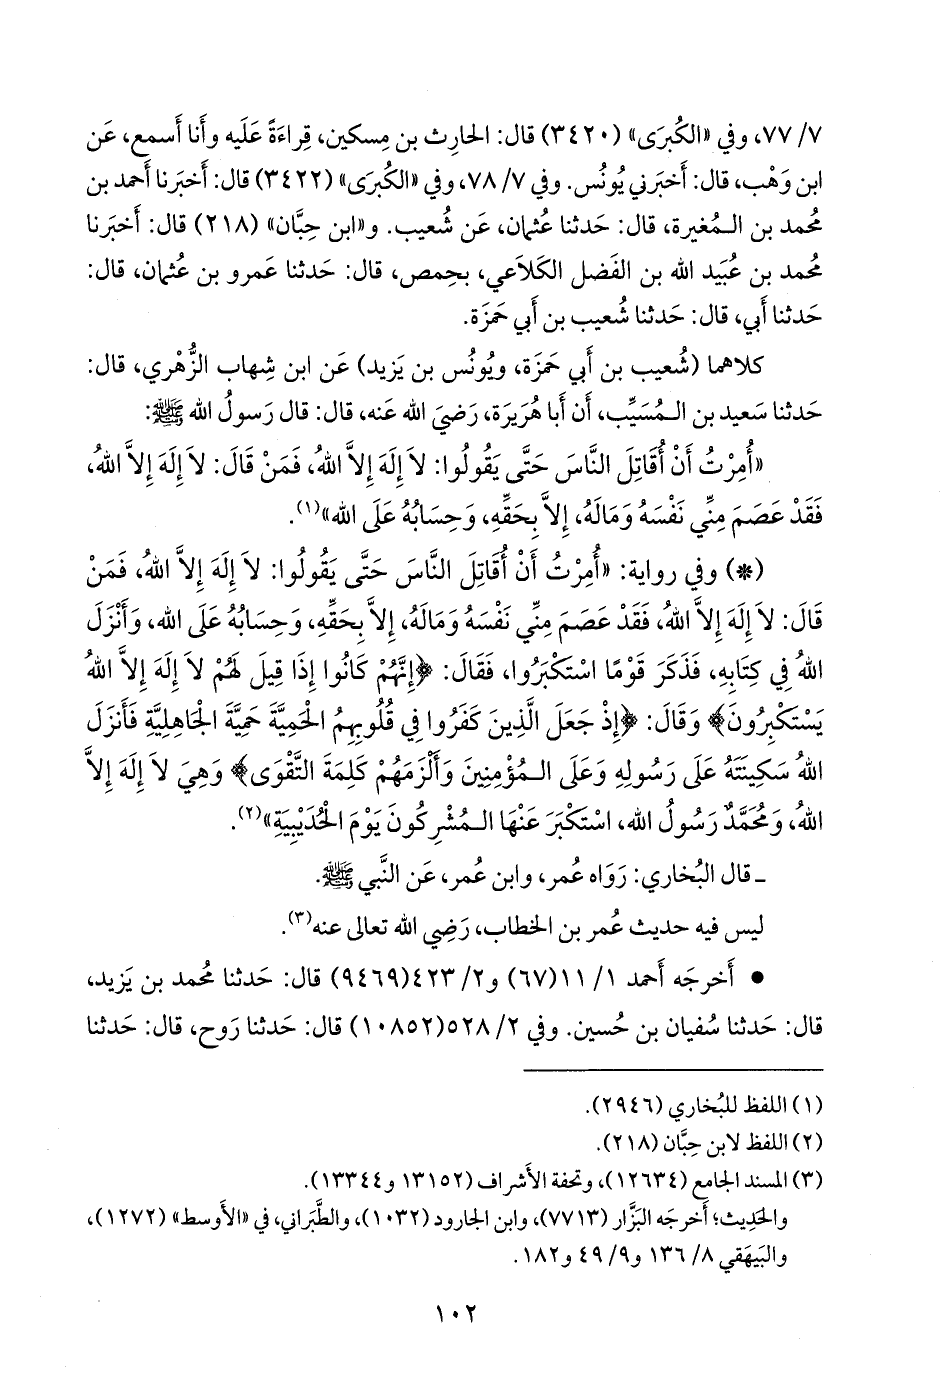 ٧/ ٧٧، وفي «الكُبرَى» (٣٤٢٠) قال: الحارِث بن مِسكين، قِراءَةً عَلَيه وأَنا أَسمع، عَن
ابن وَهْب، قال: أَخبَرني يُونُس. وفي ٧/ ٧٨، وفي «الكُبرَى» (٣٤٢٢) قال: أَخبَرنا أَحمد بن
مُحمد بن الـمُغيرة، قال: حَدثنا عُثمان، عَن شُعيب. و«ابن حِبَّان» (٢١٨) قال: أَخبَرنا
مُحمد بن عُبَيد الله بن الفَضل الكَلاَعي، بحِمص، قال: حَدثنا عَمرو بن عُثمان، قال:
حَدثنا أَبي، قال: حَدثنا شُعيب بن أَبي حَمزَة.
كلاهما (شُعيب بن أَبي حَمزَة، ويُونُس بن يَزيد) عَن ابن شِهاب الزُّهْري، قال:
حَدثنا سَعيد بن الـمُسَيِّب، أَن أَبا هُرَيرَة، رَضيَ الله عَنه، قال: قال رَسولُ الله ﷺ:
«أُمِرْتُ أَنْ أُقَاتِلَ النَّاسَ حَتَّى يَقُولُوا: لاَ إِلَهَ إِلاَّ اللهُ، فَمَنْ قَالَ: لاَ إِلَهَ إِلاَّ اللهُ،
فَقَدْ عَصَمَ مِنِّي نَفْسَهُ وَمَالَهُ، إِلاَّ بِحَقِّهِ، وَحِسَابُهُ عَلَى الله»(١).
(*) وفي رواية: «أُمِرْتُ أَنْ أُقَاتِلَ النَّاسَ حَتَّى يَقُولُوا: لاَ إِلَهَ إِلاَّ اللهُ، فَمَنْ
قَالَ: لاَ إِلَهَ إِلاَّ اللهُ، فَقَدْ عَصَمَ مِنِّي نَفْسَهُ وَمَالَهُ، إِلاَّ بِحَقِّهِ، وَحِسَابُهُ عَلَى الله، وَأَنْزَلَ
اللهُ فِي كِتَابِهِ، فَذَكَرَ قَوْمًا اسْتَكْبَرُوا، فَقَالَ: ﴿إِنَّهُمْ كَانُوا إِذَا قِيلَ لَهُمْ لاَ إِلَهَ إِلاَّ اللهُ
يَسْتَكْبِرُونَ﴾ وَقَالَ: ﴿إِذْ جَعَلَ الَّذِينَ كَفَرُوا فِي قُلُوبِهِمُ الْحَمِيَّةَ حَمِيَّةَ الْجَاهِلِيَّةِ فَأَنزَلَ
اللهُ سَكِينَتَهُ عَلَى رَسُولِهِ وَعَلَى الـمُؤْمِنِينَ وَأَلْزَمَهُمْ كَلِمَةَ التَّقْوَى﴾ وَهِيَ لاَ إِلَهَ إِلاَّ
اللهُ، وَمُحَمَّدٌ رَسُولُ الله، اسْتَكْبَرَ عَنْهَا الـمُشْرِكُونَ يَوْمَ الْحُدَيْبِيَةِ»(٢).
ـ قال البُخاري: رَوَاه عُمر، وابن عُمر، عَن النَّبي ﷺ.
ليس فيه حديث عُمر بن الخطاب، رَضِي الله تعالى عنه(٣).
• أَخرجَه أَحمد ١/ ١١(٦٧) و٢/ ٤٢٣(٩٤٦٩) قال: حَدثنا مُحمد بن يَزيد،
قال: حَدثنا سُفيان بن حُسين. وفي ٢/ ٥٢٨(١٠٨٥٢) قال: حَدثنا رَوح، قال: حَدثنا
(١) اللفظ للبُخاري (٢٩٤٦).
(٢) اللفظ لابن حِبَّان (٢١٨).
(٣) المسند الجامع (١٢٦٣٤)، وتحفة الأَشراف (١٣١٥٢ و١٣٣٤٤).
والحَدِيث؛ أَخرجَه البَزَّار (٧٧١٣)، وابن الجارود (١٠٣٢)، والطَّبَراني، في «الأَوسط» (١٢٧٢)،
والبَيهَقي ٨/ ١٣٦ و٩/ ٤٩ و١٨٢.
١٠٢